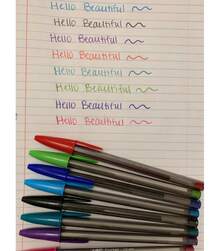 Hello Beautiful
Hello Beautiful
Hello Beautiful
Hello Beautiful
Hello Beautiful
Hello Beautiful
Hello Beautiful
Hello Beautiful
Hello Beautiful